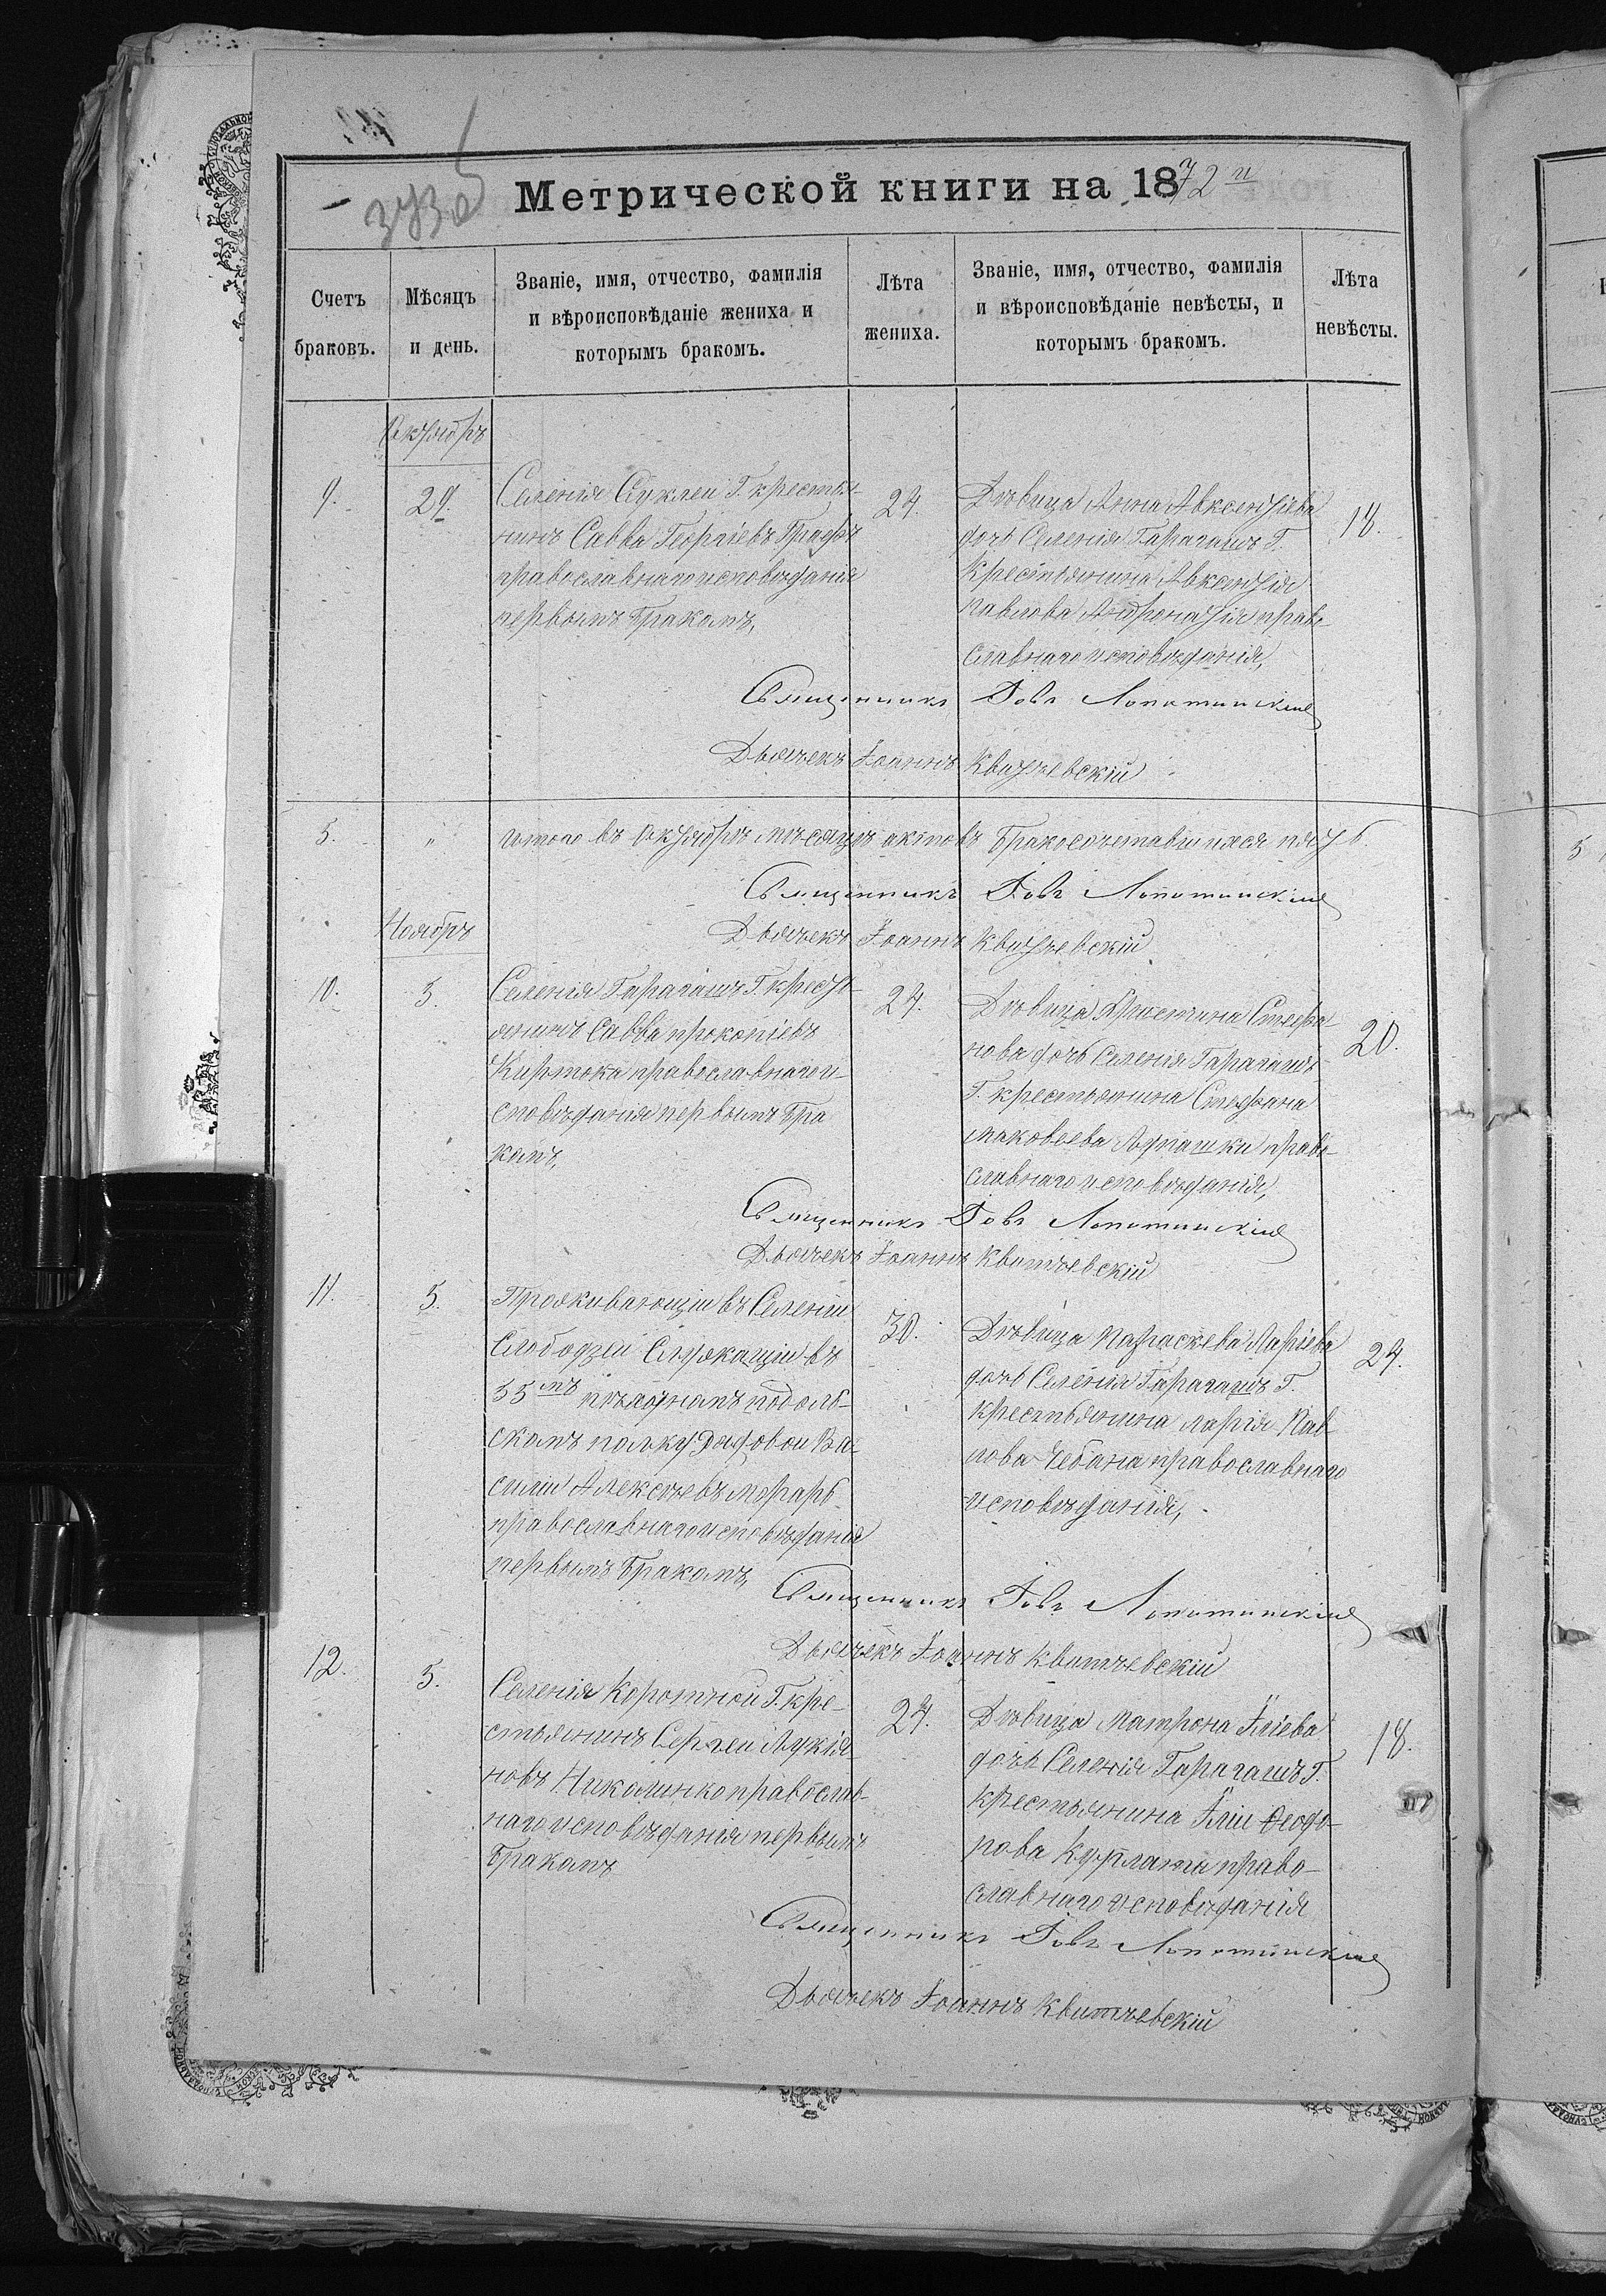 Метрической книги на 1872 г
Счетъ браковъ.
Мѣсяцъ и день.
Званіе, имя, отчество, фамилія
и вѣроисповѣданіе жениха и
которымъ бракомъ.
Лѣта жениха.
Званіе, имя, отчество, фамилія
и вѣроисповѣданіе невѣсты, и
которымъ бракомъ.
Лѣта невѣсты.
Октябрь
9.
29.
Селенія Суклеи Г. крестья-
нинъ Савва Георгіевъ
православнаго исповѣданія
первымъ бракомъ,
24.
Дѣвица Анна Авксентіева
дочь Селенія Гарагашъ Г.
Крестьянина Авксентія
Павлова Андронатія право-
славнаго исповѣданія,
18.
Священникъ Іовъ Лопатинскій
Дьячекъ Іоаннъ Квитчевскій
5.
"
итого въ Октябрѣ мѣсяцѣ актовъ бракосочетавшихся пять.
Священникъ Іовъ Лопатинскій
Дьячекъ Іоаннъ Квитчевскій
Ноябрь
10.
5.
Селенія Гарагашъ Г. кресть-
янинъ Савва Прокопіевъ
Киртока православнаго и-
сповѣданія первымъ бра
комъ,
24.
Дѣвица Христина Стефа-
нова дочь Селенія Гарагашъ
Г. крестьянина Стефана
Маковеева право-
славнаго исповѣданія,
20.
Священникъ Іовъ Лопатинскій
Дьячекъ Іоаннъ Квитчевскій
11.
5.
Проживающіи въ Селеніи
Слободзеи Служащіи въ
55мъ пѣхотномъ подоль-
скомъ полку Рядовои Ва-
силіи Алексѣевъ Морарь
православнаго исповѣданія
первымъ бракомъ,
30.
Дѣвица Параскева Ларіева
дочь Селенія Гарагашъ Г.
крестьянина Ларія Пав-
лова Чебана православнаго
исповѣданія,
24.
Священникъ Іовъ Лопатинскій
Дьячекъ Іоаннъ Квитчевскій
12.
5.
Селенія Коротнои Г. кре-
стьянинъ Сергеи Лукія-
новъ Николинко православ-
наго исповѣданія первымъ
бракомъ
24.
Дѣвица Матрона Иліева
дочь Селенія Гарагашъ Г.
крестьянина Иліи Феодо-
рова право-
славнаго исповѣданія
18.
Священникъ Іовъ Лопатинскій
Дьячекъ Іоаннъ Квитчевскій